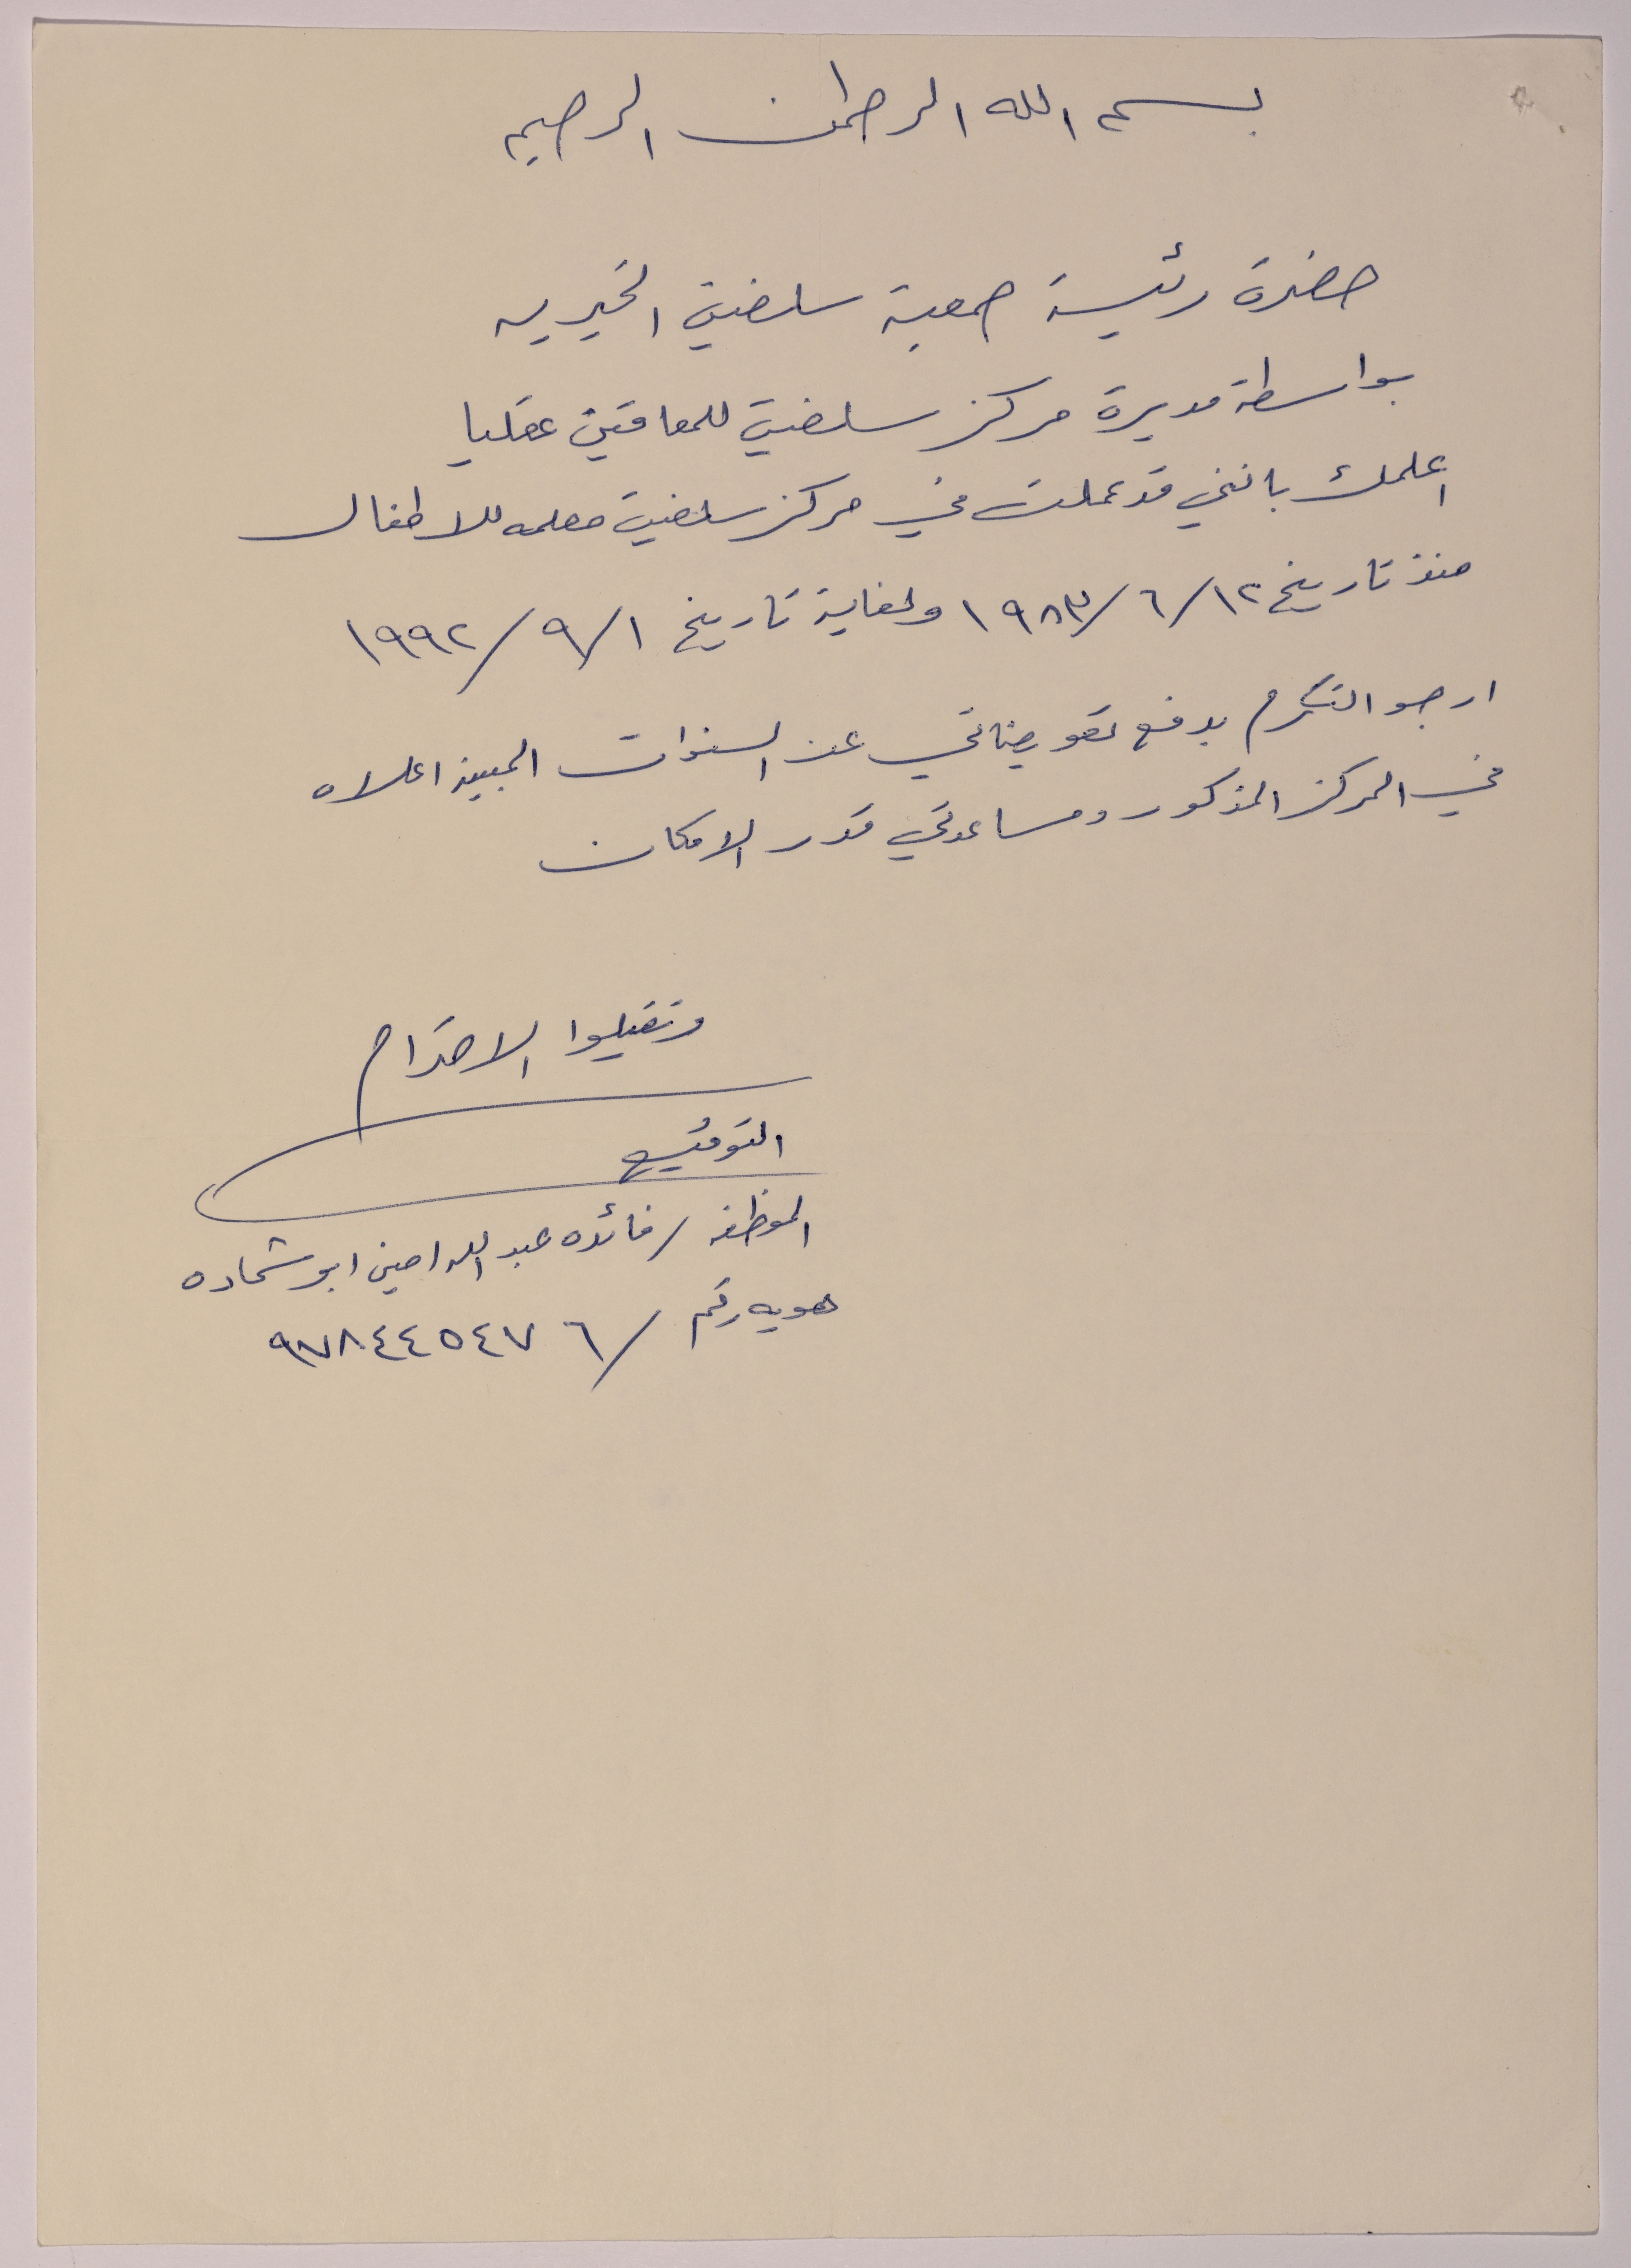 بسم الله الرحمان الرحيم
حضرة رئيسة جمعية سلفيت الخيريه
بواسطة مديرة مركز سلفيت للمعاقين عقليا
اعلمك بانني قد عملت في مركز سلفيت معلمه للاطفال
منذ تاريخ ١٢/٦/١٩٨٣ ولغاية تاريخ ١/٩/١٩٩٢
ارجو التكرم بدفع تعويضاتي عن السنوات المبينه اعلاه
في المركز المذكور ومساعدتي قدر الامكان
وتقبلوا الاحترام
التوقيع
الموظفه / فائده عبد الله امين ابو شحاده
هويه رقم / ٩٧٨٤٤٥٤٧٦